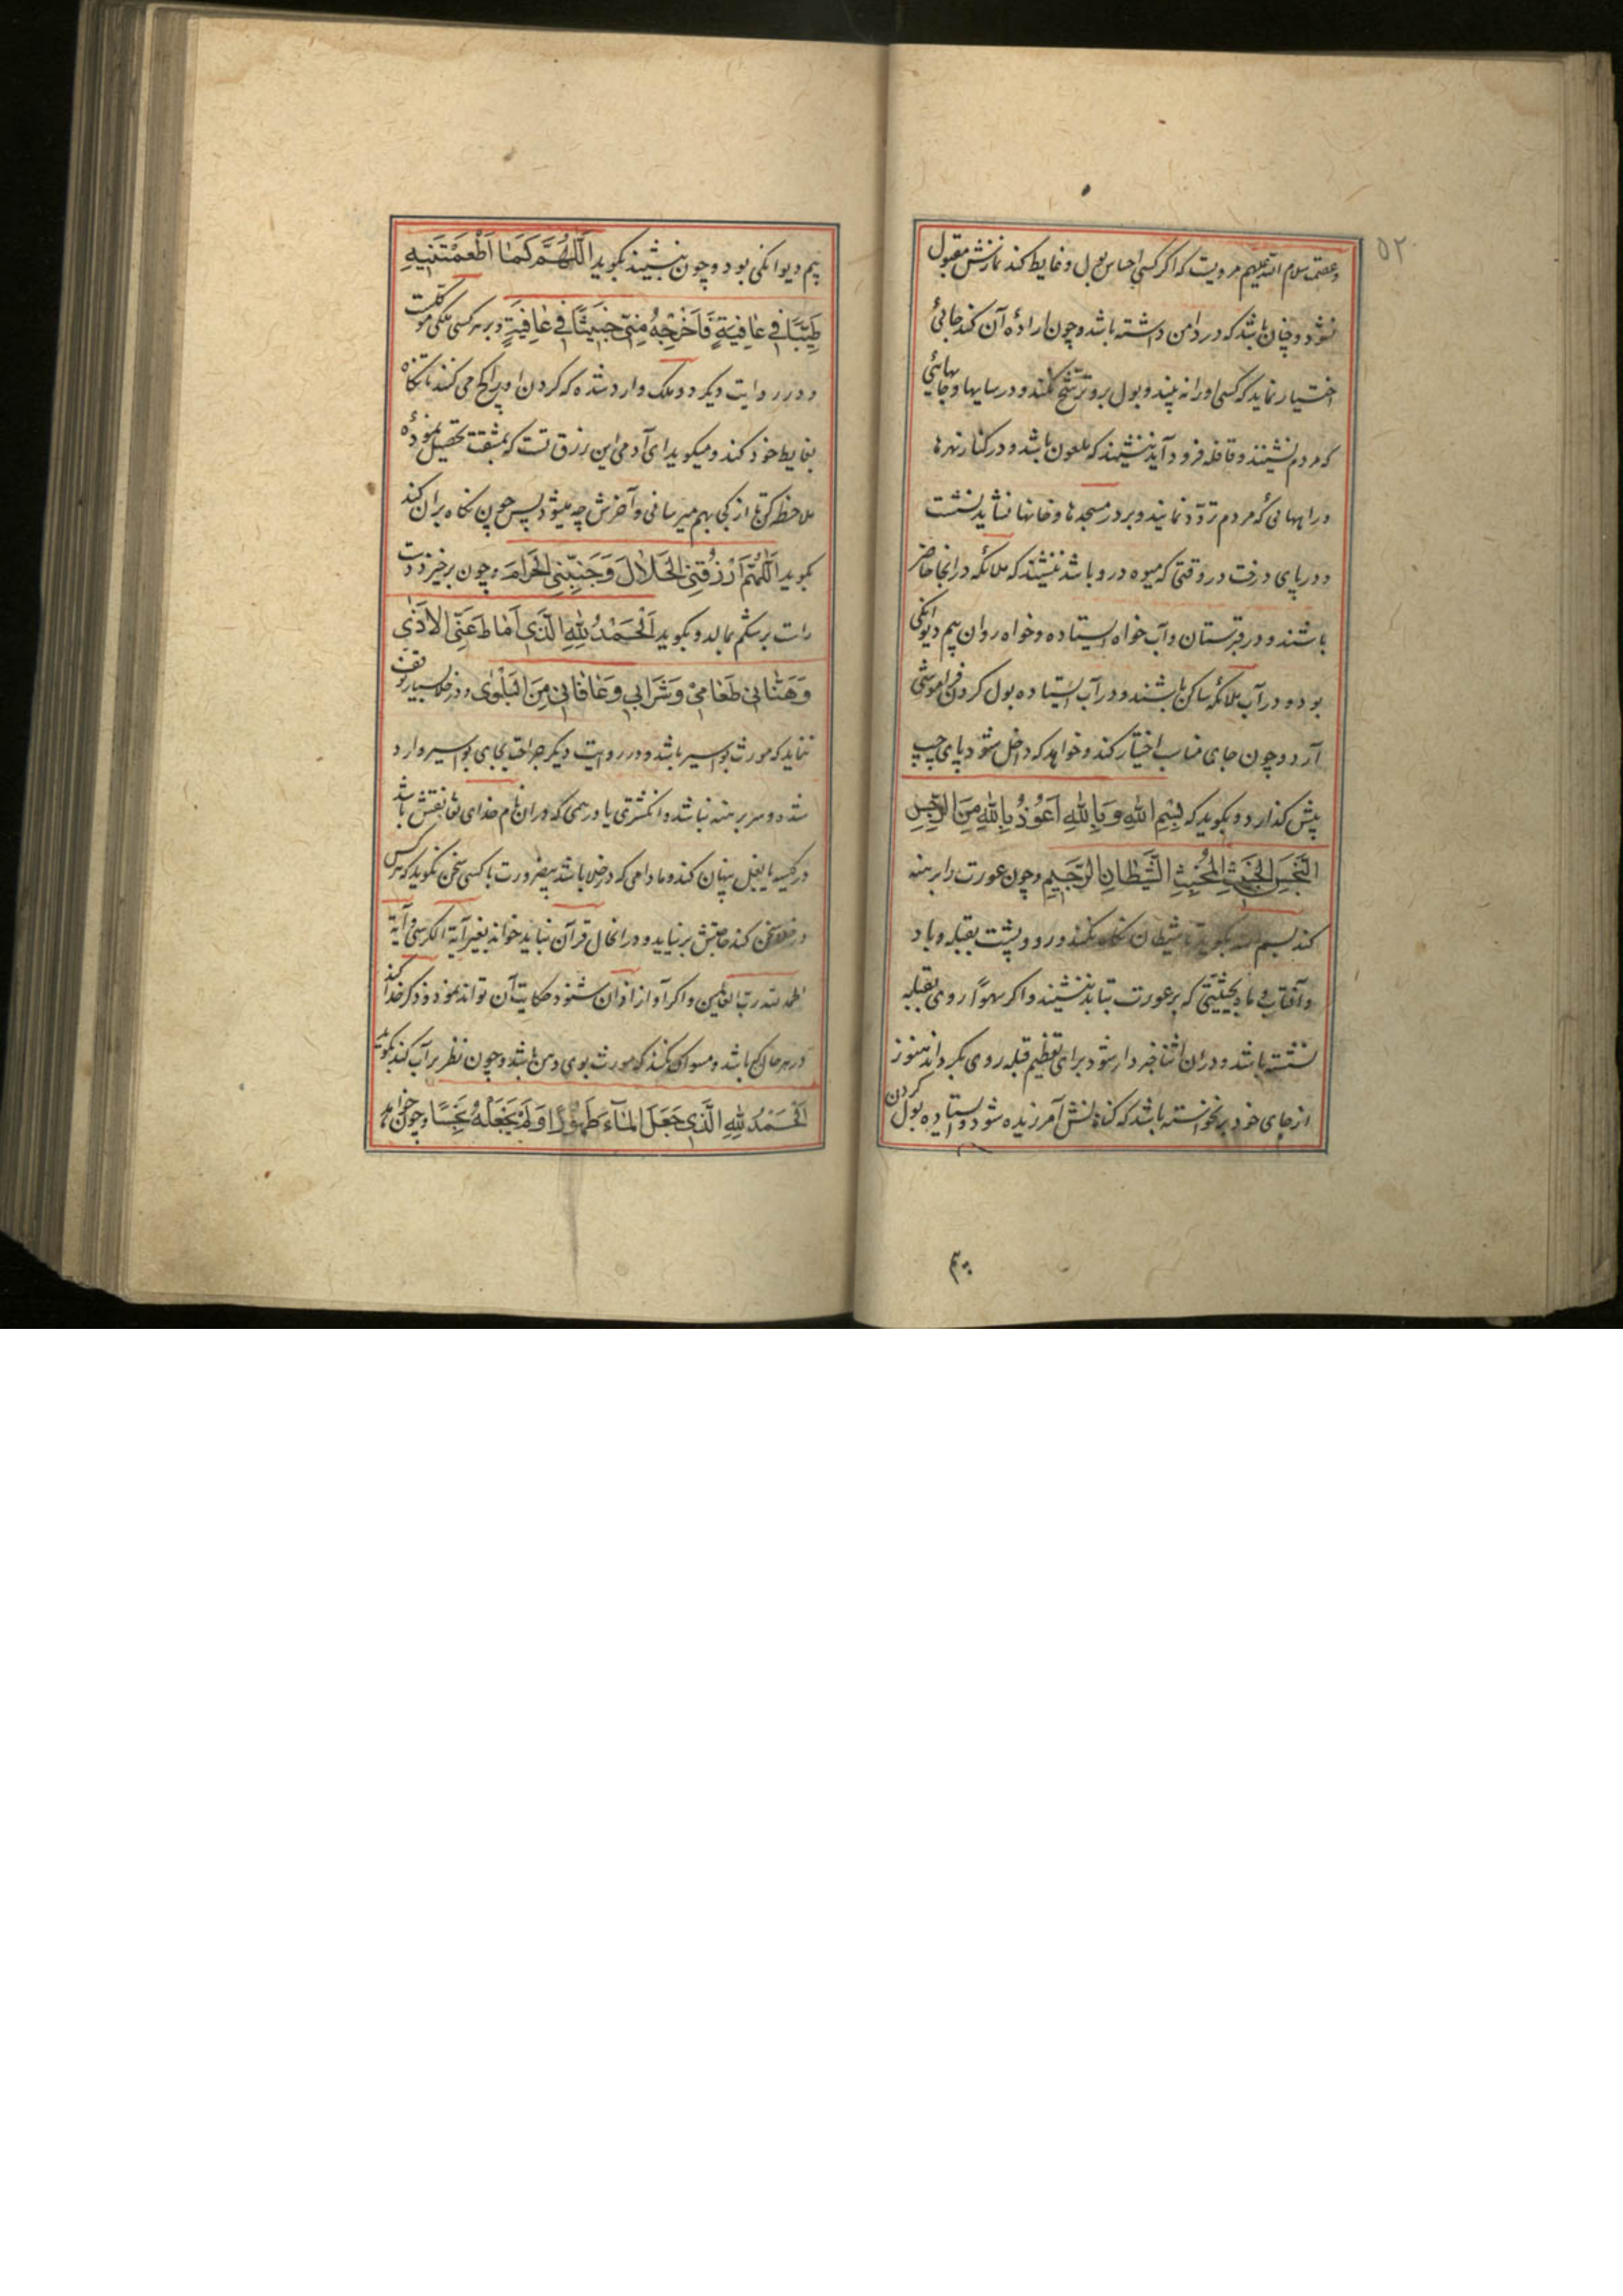 ۵۲
و عصمت سلام الله علیهم مرویست که اگر کسی احساس بول و غایط کند نمازش مقبول
نشود و چنان باشد که در دامن داشته باشد و چون اراده آن کند جائی
اختیار نماید که کسی او را نه بیند و بول برو ترشح نکند و در سایها و جایهائی
که مردم نشینند و قافله فرود آید ننشیند که ملعون باشد و در کنار نهرها
و راههائی که مردم تردد نمایند و بر در مسجدها و خانها نشاید نشست
و در پای درخت در وقتی که میوه درو باشد ننشیند که ملائکه در انجا حاضر
باشند و در قبرستان و آب خواه ایستاده و خواه روان بیم دیوانکی
بود و در آب ملائکه ساکن باشند و در آب ایستاده بول کردن فراموشی
آرد و چون جای مناسب اختیار کند و خواهد که داخل شود پای چپ
پیش کذارد و بکوید که بِسْمِ اللهِ وَبِاللهِ اَعُوْذُ بِاللهِ مِنَ الرِّجْسِ
النَّجِسِ الخَبِيْثِ المُخْبِثِ الشَّيْطَانِ الرَّجِيمِ و چون عورت را برهنه
کند بسم الله بکوید تا شیطان نکاه نکند و رو و پشت بقبله و باد
و آفتاب و ماه بحیثیتی که بر عورت بتابد ننشیند و اکر سهوًا روی بقبله
نشسته باشد و در ان اثنا خبردار شود برای تعظیم قبله روی بکرداند هنوز
از جای خود بر نخواسته باشد که کناهانش آمرزیده شود و ایستاده بول کردن
بیم
بیم دیوانکی بود و چون بنشیند بکوید اَللّٰهُمَّ كَمَا اَطْعَمْتَنِيهِ
طَيِّبًا فِي عَافِيَةٍ فَاَخْرِجْهُ مِنِّي خَبِيْثًا فِي عَافِيَةٍ و بر هر کسی ملکی موکلست
و در روایت دیکر دو ملک وارد شده که کردن او را کج می کنند تا نکاه
بغایط خود کند و میکوید ای آدمی این رزق تست که بمشقت تحصیل نمودهٔ
ملاحظه کن تا از کجا بهم میرسانی و آخرش چه میشود پس چون نکاه بران کند
بکوید اَللّٰهُمَّ ارْزُقْنِي الْحَلَالَ وَجَنِّبْنِي الْحَرَامَ و چون برخیزد دست
راست بر شکم بمالد و بکوید اَلْحَمْدُ لِلّٰهِ الَّذِي اَمَاطَ عَنِّي الْاَذٰي
وَهَنَّانِي طَعَامِيْ وَشَرَابِي وَعَافَانِي مِنَ الْبَلْوٰی و در خلا بسیار توقف
ننماید که مورث بواسیر باشد و در روایت دیکر جراحت بجای بواسیر وارد
شده و سر برهنه نباشد و انکشتری یا درهمی که در ان نام خدای تعا نقش باشد
در کیسه یا بغل پنهان کند و مادامی که در خلا باشد بیضرورت با کسی سخن نکوید که هر کس
در خلا سخن کند حاجتش بر نیاید و در انحال قرآن نباید خواند بغیر آیة الکرسی و آیة
الحمد لله رب العالمین و اکر آواز اذان شنود حکایت آن تواند نمود و ذکر خدا کند
در هر حال که باشد و مسواک نکند که مورث بوی دهن باشد و چون نظر بر آب کند بکوید
اَلْحَمْدُ لِلّٰهِ الَّذِي جَعَلَ الْمَآءَ طَهُوْرًا وَلَمْ يَجْعَلْهُ نَجِسًا و چون خواهد